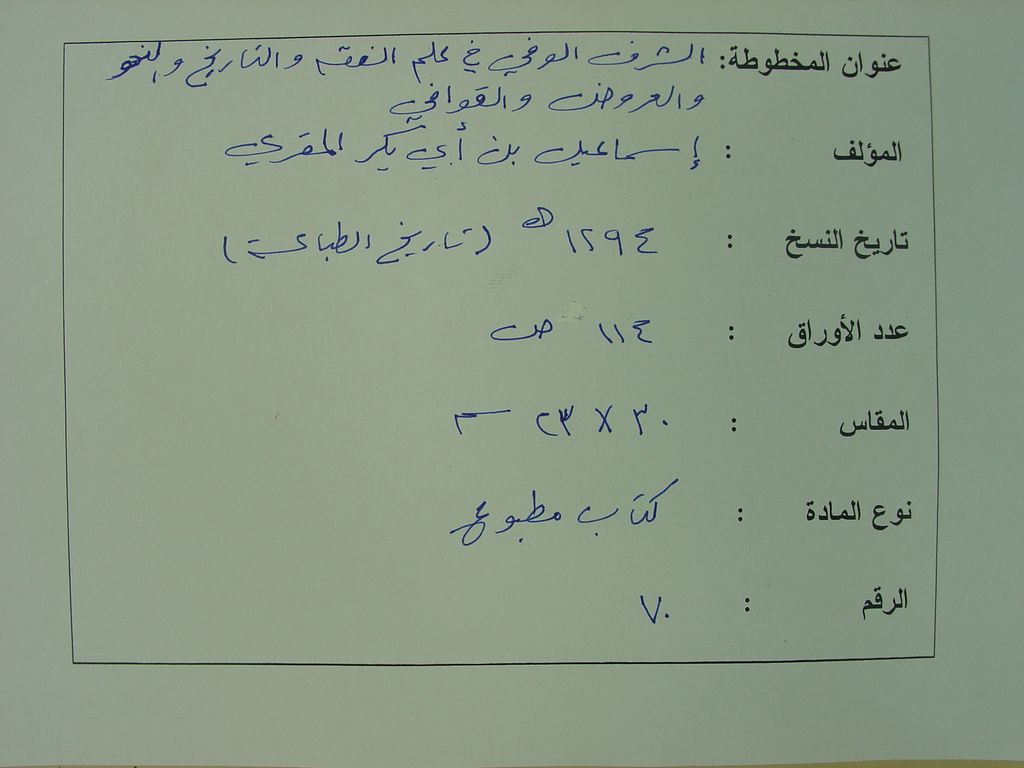 عنوان المخطوطة: الشرف الوفي في علم الفقه والتاريخ والنحو
والعروض والقوافي
المؤلف : إسماعيل بن أبي بكر المقري
تاريخ النسخ : ١٢٩٤ هـ (تاريخ الطباعة)
عدد الأوراق : ١١٤ ص
المقاس : ٣٠ X ٢٣ سم
نوع المادة : كتاب مطبوع
الرقم : ٧٠